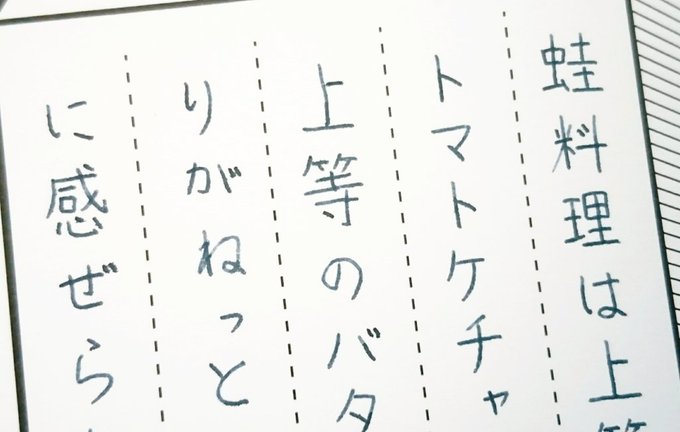 蛙料理は上等
トマトケチャ
上等のバタ
りがねっと
に感ぜら